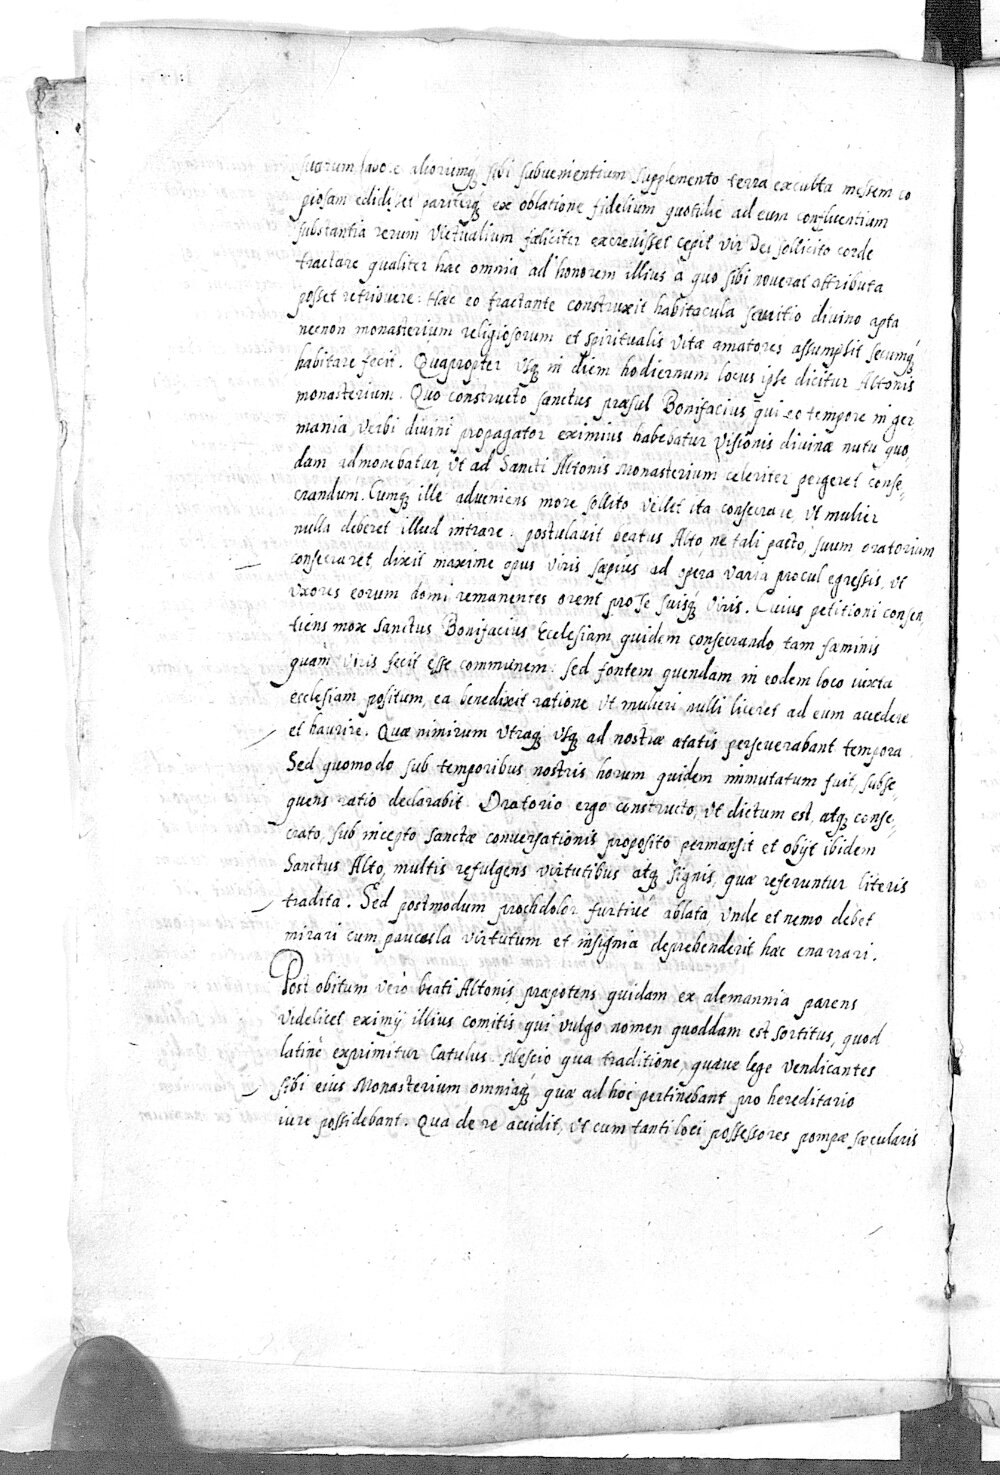 suorum labore aliorumq, sibi subvenientium supplemento terra exculta messem co
piosam edidisset pariterq, ex oblatione fidelium quotidie ad eum confluentiam
substantia rerum victualium fæliciter excrevisset cepit vir Dei sollicito corde
tractare qualiter hæc omnia ad honorem illius a quo sibi noverat attributa
posset retribuere. Hæc eo tractante construxit habitacula servitio divino apta
necnon monasterium religiosorum et spiritualis vitæ amatores assumpsit secumq́
habitare fecit. Quapropter usq, in diem hodiernum locus ipse dicitur Altonis
monasterium. Quo constructo sanctus præsul Bonifacius qui eo tempore in ger
mania, verbi divini propagator eximius habebatur visionis divinæ nutu quo,
dam admonebatur, ut ad Sancti Altonis Monasterium celeriter pergeret conse,
crandum. Cumq, ille adveniens more sollito vellet ita consecrare, ut mulier
nulla deberet illud intrare: postulavit beatus Alto, ne tali pacto, suum oratorium
consecraret, dixit maxime opus viris sæpius ad opera varia procul egressis, ut
uxores eorum domi remanentes orent pro se suisq́ viris. Cuius petitioni consen,
tiens mox sanctus Bonifacius Ecclesiam, quidem consecrando tam fæminis
quàm viris fecit esse communem: sed fontem quendam in eodem loco iuxta
ecclesiam positum, ea benedixit ratione ut mulieri nulli liceret ad eum accedere
et haurire. Quæ nimirum utraq, usq, ad nostræ ætatis perseverabant tempora.
Sed quomodo sub temporibus nostris horum quidem immutatum fuit, subse,
quens ratio declarabit. Oratorio ergo constructo, ut dictum est, atq, conse,
crato, sub incepto sanctæ conversationis proposito permansit et obijt ibidem
Sanctus Alto, multis refulgens virtutibus atq, signis, quæ referuntur literis
tradita. Sed postmodum prochdolor furtivè ablata unde et nemo debet
mirari cum paucula virtutum et insignia deprehenderit hæc enarrari.
Post obitum verò beati Altonis præpotens quidam ex alemannia parens
videlicet eximij illius comitis qui vulgo nomen quoddam est sortitus, quod
latinè exprimitur Catulus. Nescio qua traditione, quave lege vendicantes
sibi eius Monasterium omniaq́ quæ ad hoc pertinebant pro hereditario
iure possidebant. Qua de re accidit, ut cum tanti loci possessores pompæ sæcularis